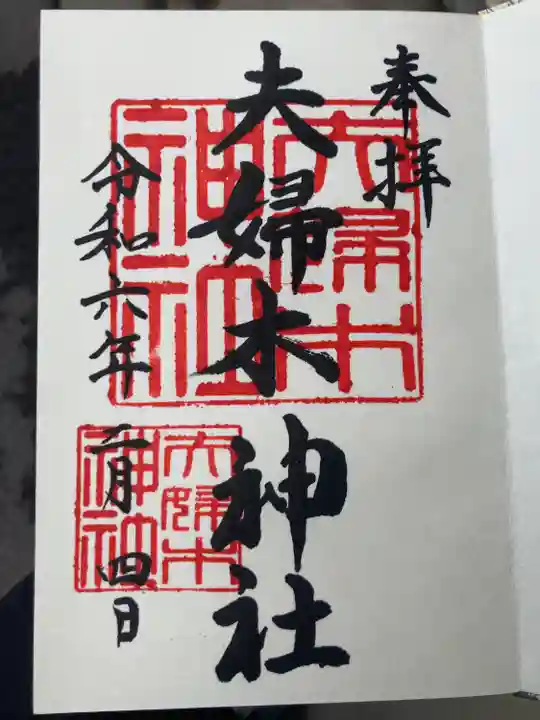 奉拝
夫婦木神社
令和六年二月四日
夫婦木
神社
夫婦木
神社